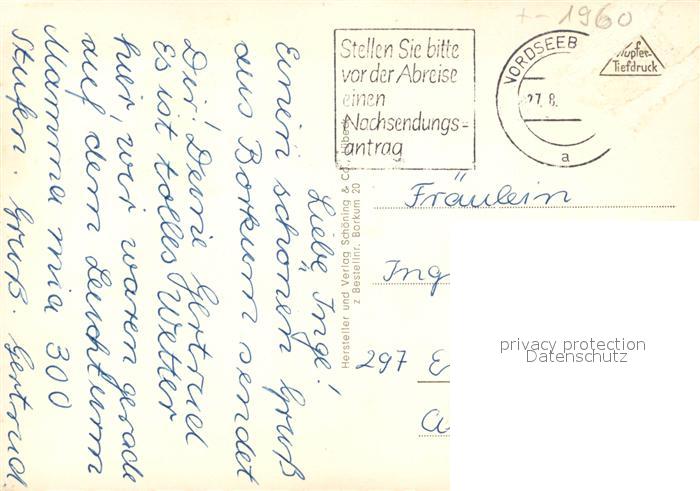 +- 1960
Stellen Sie bitte
vor der Abreise
einen
Nachsendungs=
antrag
NORDSEEB
27. 8.
a
Kupfer-
Tiefdruck
Liebe Inge!
Einen schönen Gruß
aus Borkum sendet
Dir! Deine Gertrud
Es ist tolles Wetter
hier, wir waren gerade
auf dem Leuchturm
Mamma mia 300
Stufen. Gruß. Gertrud
Hersteller und Verlag Schöning & Co., Lübeck
z Bestellnr. Borkum 20
Fräulein
Ing
297 E
privacy protection
Datenschutz